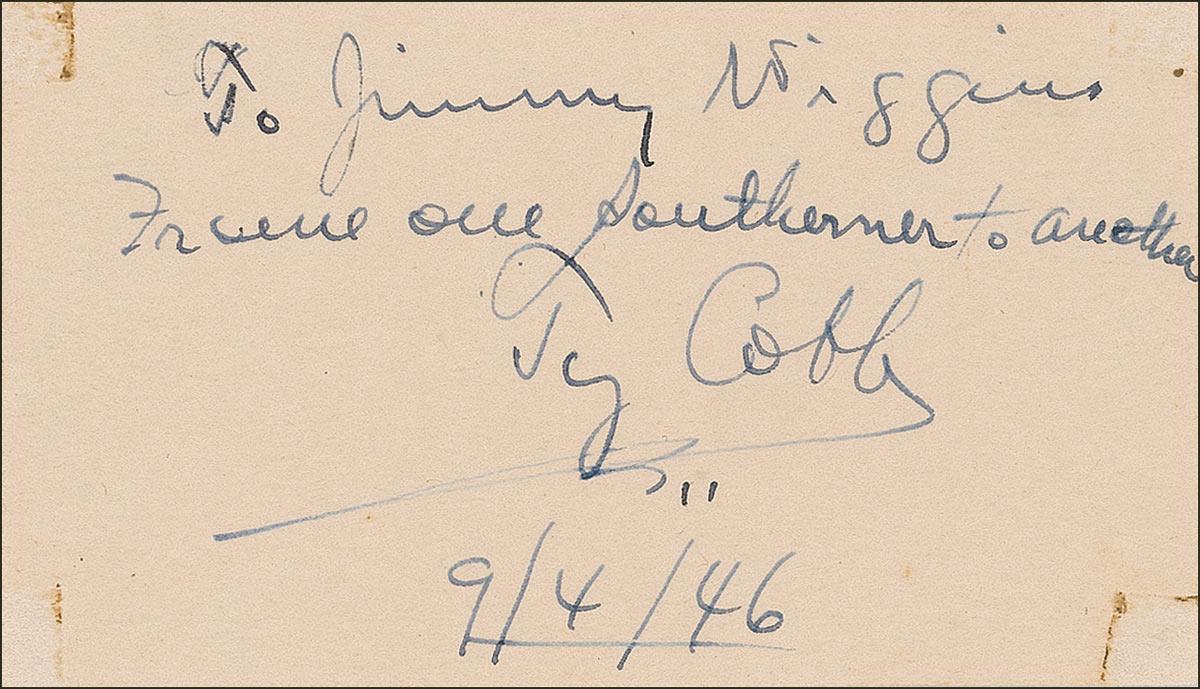 To Jimmy Wiggins
From one Southerner to another
Ty Cobb
9/4/46